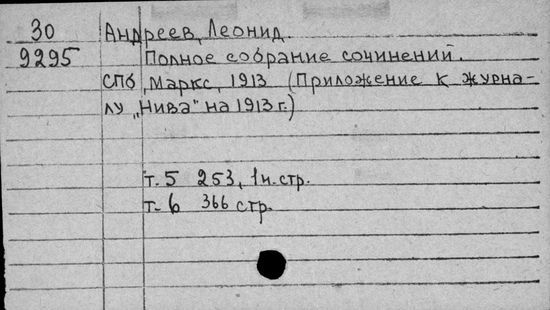 30 Андреев, Леонид.
9295 Полное собрание сочинений.
СПб, Маркс, 1913 (Приложение к журна-
лу „Нива" на 1913 г.)
т. 5 253, 1 н. стр.
т. 6 366 стр.